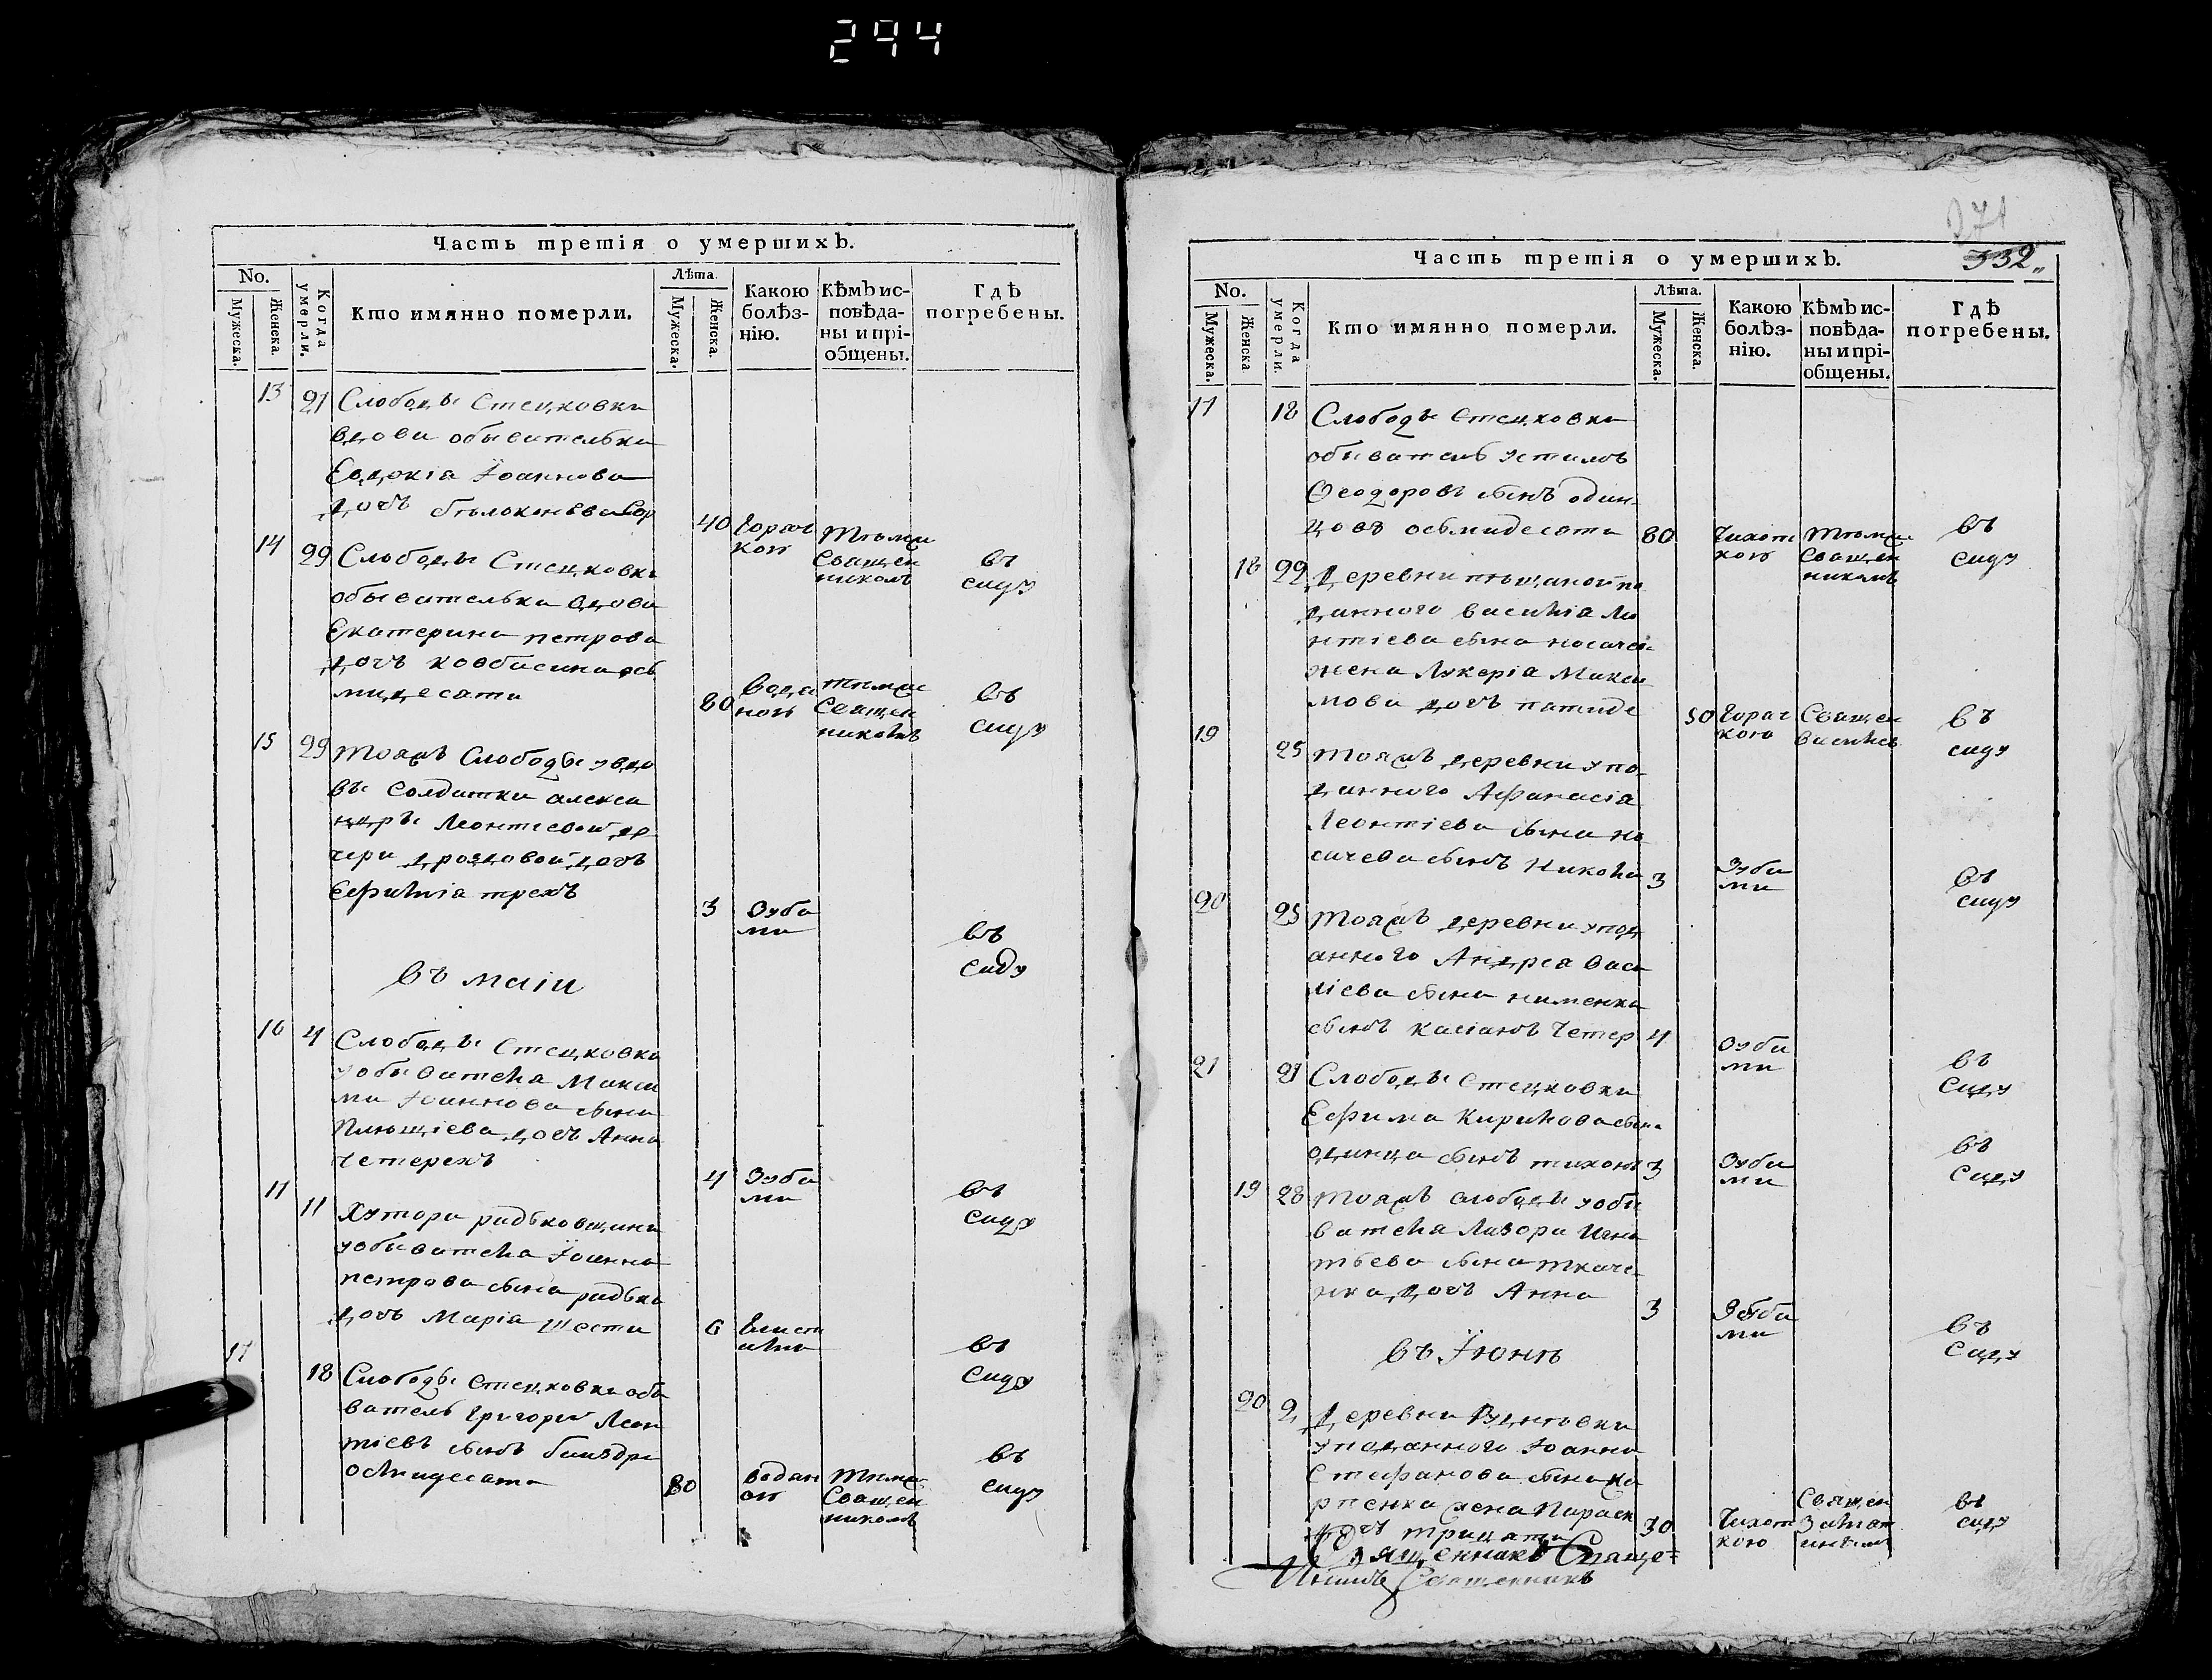 294
Часть третія о умершихъ.
No.
Мужеска.
Женска.
Когда умерли.
Кто имянно померли.
Лѣта.
Мужеска.
Женска.
Какою болѣз-
нію.
Кѣмъ ис-
повѣда-
ны и прі-
общены.
Гдѣ
погребены.
13 21 Слободы Стецковки
вдова обывателька
Евдокіа Іоаннова
дочь 40 Горяч
кою
тѣмже
Священ
никомъ
въ
саду
14 29 Слободы Стецковки
обывателька вдова
Екатерина петрова
дочь ковбасина ось
мидесяти 80 водя
ною
тѣмже
Священ
никомъ
въ
саду
15 29 тояжъ Слободы увдо
вы Солдатки алекса
ндры Леонтіевой до
чери дроздовой дочь
Ефиміа трехъ 3 Зуба
ми
въ
саду
въ маіи
16 4 Слободы Стецковки
уобывателя Макси
ма Іоаннова сына
дочь Анна
четерехъ 4 Зуба
ми
въ
саду
17 11 Хутора радковщины
уобывателя Іоанна
петрова сына радька
дочь Маріа шести 6
въ
саду
17 18 Слободы Стецковки обы
ватель Григорій Леон
тіевъ сынъ
осмидесяти 80 водян
ою
тѣмже
Священ
никомъ
въ
саду
371
332
Часть третія о умершихъ.
No.
Мужеска.
Женска
Когда умерли.
Кто имянно померли.
Лѣта.
Мужеска.
Женска.
Какою болѣз-
нію.
Кѣмъ ис-
повѣда-
ны и прі-
общены.
Гдѣ
погребены.
17 18 Слободы Стецковки
обыватель устимъ
Ѳеодоровъ сынъ один
цовъ осьмидесяти 80 Чихот
кою
тѣмже
Священ
никомъ
въ
саду
18 22 Деревни пѣщаной по
данного василіа Ле
нтіева сына носаче
жена Лукеріа Макси
мова дочь патиде 50 Горяч
кою
Священ
въ
саду
19 25 тояжъ деревни упо
данного Афанасіа
Леонтіева сына но
сачева сынъ Никола 3 Зуба
ми
въ
саду
20 25 тояжъ деревни упод
анного Андреа Васи
ліева сына нименка
сынъ касіанъ Четер 4 Зуба
ми
въ
саду
21 27 Слободы Стецковки
Ефима Кирилова сына
одинца сынъ тихонъ 3 Зуба
ми
въ
саду
19 28 тояжъ слободы уобы
вателя Лазора Игна
тьева сына ткаче
нка дочь Анна 3 Зуба
ми
въ
саду
въ Іюнѣ
20 2 Деревни
уподанного Іоанна
Стефанова сына ка
рпенка жена Параск
дочь трицати 30 Чихот
кою
Священ
въ
саду
Священникъ
Священникъ